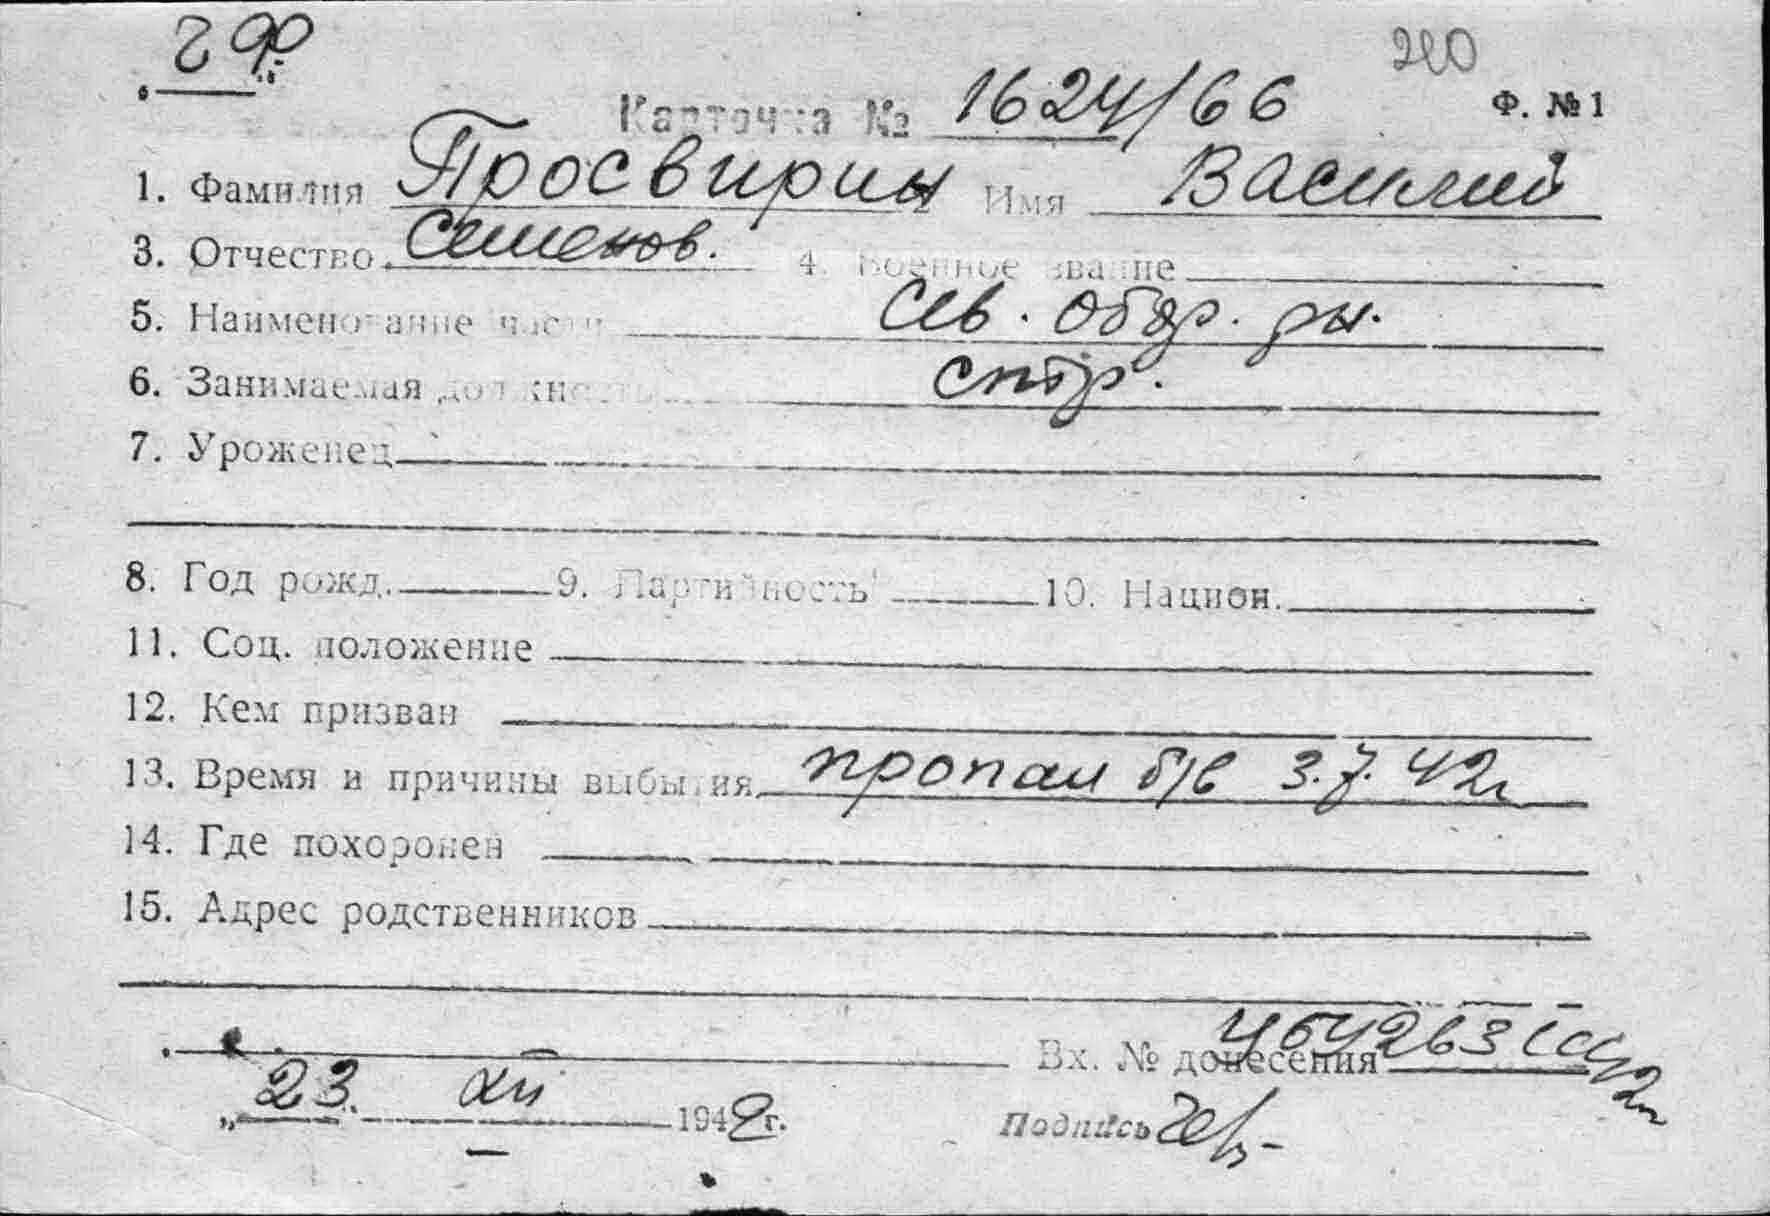 210
Карточка № 1624/66 Ф. № 1
1. Фамилия Просвирин 2 Имя Василий
3. Отчество Семенов. 4. Военное звание
5. Наименование части Сев. обор. рн.
6. Занимаемая должность стр.
7. Уроженец
8. Год рожд. 9. Партийность 10. Национ.
11. Соц. положение
12. Кем призван
13. Время и причины выбытия пропал б/в 3.7.42г
14. Где похоронен
15. Адрес родственников
Вх. № донесения
„23. XII 1942г. Подпись